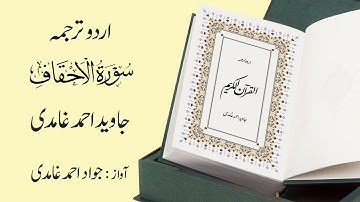 اردو ترجمہ
سُوْرَةُ الْاَحْقَافِ
جاوید احمد غامدی
آواز : جواد احمد غامدی
اردو ترجمہ
القرآن الکریم
جاوید احمد غامدی